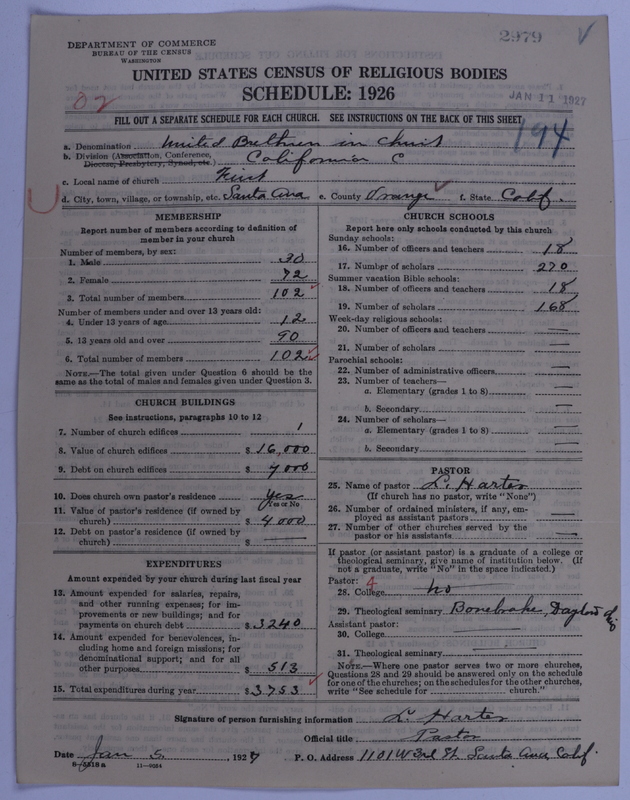 DEPARTMENT OF COMMERCE
BUREAU OF THE CENSUS
WASHINGTON
2979
UNITED STATES CENSUS OF RELIGIOUS BODIES
SCHEDULE: 1926
JAN 11 1927
FILL OUT A SEPARATE SCHEDULE FOR EACH CHURCH. SEE INSTRUCTIONS ON THE BACK OF THIS SHEET
194
a. Denomination United Brethren in Christ
b. Division (Association, Conference, Diocese, Presbytery, Synod, etc.) California C
c. Local name of church First
d. City, town, village, or township, etc. Santa Ana e. County Orange f. State Calif.
MEMBERSHIP
Report number of members according to definition of
member in your church
Number of members, by sex:
1. Male 30
2. Female 72
3. Total number of members 102
Number of members under and over 13 years old:
4. Under 13 years of age 12
5. 13 years old and over 90
6. Total number of members 102
NOTE.—The total given under Question 6 should be the
same as the total of males and females given under Question 3.
CHURCH BUILDINGS
See instructions, paragraphs 10 to 12
7. Number of church edifices 1
8. Value of church edifices $ 16,000
9. Debt on church edifices $ 7000
10. Does church own pastor's residence yes
Yes or No
11. Value of pastor's residence (if owned by
church) $ 4000
12. Debt on pastor's residence (if owned by
church) $ —
EXPENDITURES
Amount expended by your church during last fiscal year
13. Amount expended for salaries, repairs,
and other running expenses; for im-
provements or new buildings; and for
payments on church debt $ 3240
14. Amount expended for benevolences, in-
cluding home and foreign missions; for
denominational support; and for all
other purposes $ 513
15. Total expenditures during year $ 3753
CHURCH SCHOOLS
Report here only schools conducted by this church
Sunday schools:
16. Number of officers and teachers 18
17. Number of scholars 270
Summer vacation Bible schools:
18. Number of officers and teachers 18
19. Number of scholars 168
Week-day religious schools:
20. Number of officers and teachers —
21. Number of scholars —
Parochial schools:
22. Number of administrative officers —
23. Number of teachers—
a. Elementary (grades 1 to 8) —
b. Secondary —
24. Number of scholars—
a. Elementary (grades 1 to 8) —
b. Secondary —
PASTOR
25. Name of pastor L. Harter
(If church has no pastor, write "None")
26. Number of ordained ministers, if any, em-
ployed as assistant pastors —
27. Number of other churches served by the
pastor or his assistants —
If pastor (or assistant pastor) is a graduate of a college or
theological seminary, give name of institution below. (If
not a graduate, write "No" in the space indicated.)
Pastor: 4
28. College no
29. Theological seminary Bonebrake, Dayton
Assistant pastor:
30. College —
31. Theological seminary —
NOTE.—Where one pastor serves two or more churches,
Questions 28 and 29 should be answered only on the schedule
for one of the churches; on the schedules for the other churches,
write "See schedule for church."
Signature of person furnishing information L. Harter
Official title Pastor
Date Jan 5, 1927 P. O. Address 1101 W 3rd St. Santa Ana Calif.
8-5318 a 11-9054